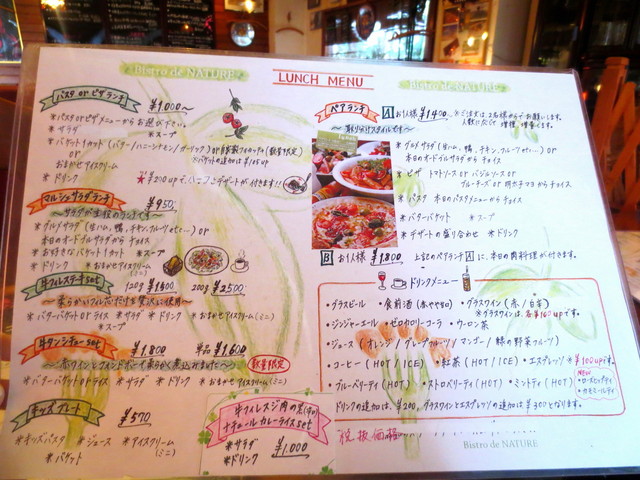 Bistro de NATURE
LUNCH MENU
Bistro de NATURE
パスタ or ピザ ランチ ¥1,000〜
※パスタorピザメニューからお選び下さい。
※サラダ ※スープ
※バゲット1カット(バター/ハニーシナモン/ガーリック) or 自家製フォカッチャ(数量限定)
※バゲットの追加は¥105up
or
おまかせアイスクリーム
※ドリンク
マルシェサラダランチ ¥950
〜サラダが主役のランチです〜
※グルメサラダ(生ハム, 鴨, チキン, フルーツetc...) or
本日のオードブルサラダからチョイス
※お好きなバゲット1カット ※スープ
※ドリンク ※おまかせアイスクリーム
(ミニ)
牛フィレステーキset 120g ¥1500 200g ¥2,500
〜柔らかいフィレ芯だけを贅沢に使用〜
※バターバゲット or ライス ※サラダ ※ドリンク ※おまかせアイスクリーム(ミニ)
※スープ
牛タンシチューset ¥1,800 単品 ¥1,600
〜赤ワインとフォンドボーで柔らかく煮込みました〜 数量限定
※バターバゲット or ライス ※サラダ ※ドリンク ※おまかせアイスクリーム(ミニ)
キッズプレート ¥570
※キッズパスタ ※ジュース ※アイスクリーム
(ミニ)
※バゲット
ナチュールカレーライスset
※サラダ
※ドリンク ¥1,000
ペアランチ A お1人様 ¥1400
※ご注文は、2名様からでお願いします。
〜取り分けスタイルです〜
※グルメサラダ(生ハム, 鴨, チキン, フルーツetc...) or
本日のオードブルサラダからチョイス
※ピザ トマトソース or バジルソース or
ブルーチーズ or 明太子マヨからチョイス
※パスタ 本日のパスタメニューからチョイス
※バターバゲット ※スープ
※デザートの盛り合わせ ※ドリンク
B お1人様 ¥1,800 上記のペアランチAに、本日の肉料理が付きます。
ドリンクメニュー
・グラスビール ・食前酒(赤や甘口) ・グラスワイン(赤/白)
※グラスワインは、各¥160upです。
・ジンジャーエール ・ゼロカロリーコーラ ・ウーロン茶
・ジュース(オレンジ/グレープフルーツ/マンゴー/緑の野菜フルーツ)
・コーヒー(HOT/ICE) ・紅茶(HOT/ICE) ・エスプレッソ ※¥100upです。
・ブルーベリーティ(HOT) ・ストロベリティ(HOT) ・ミントティ(HOT)
NEW
・ローズヒップティ
・カモミールティ
ドリンクの追加は、¥200、グラスワインとエスプレッソの追加は¥300となります。
税抜価格
Bistro de NATURE